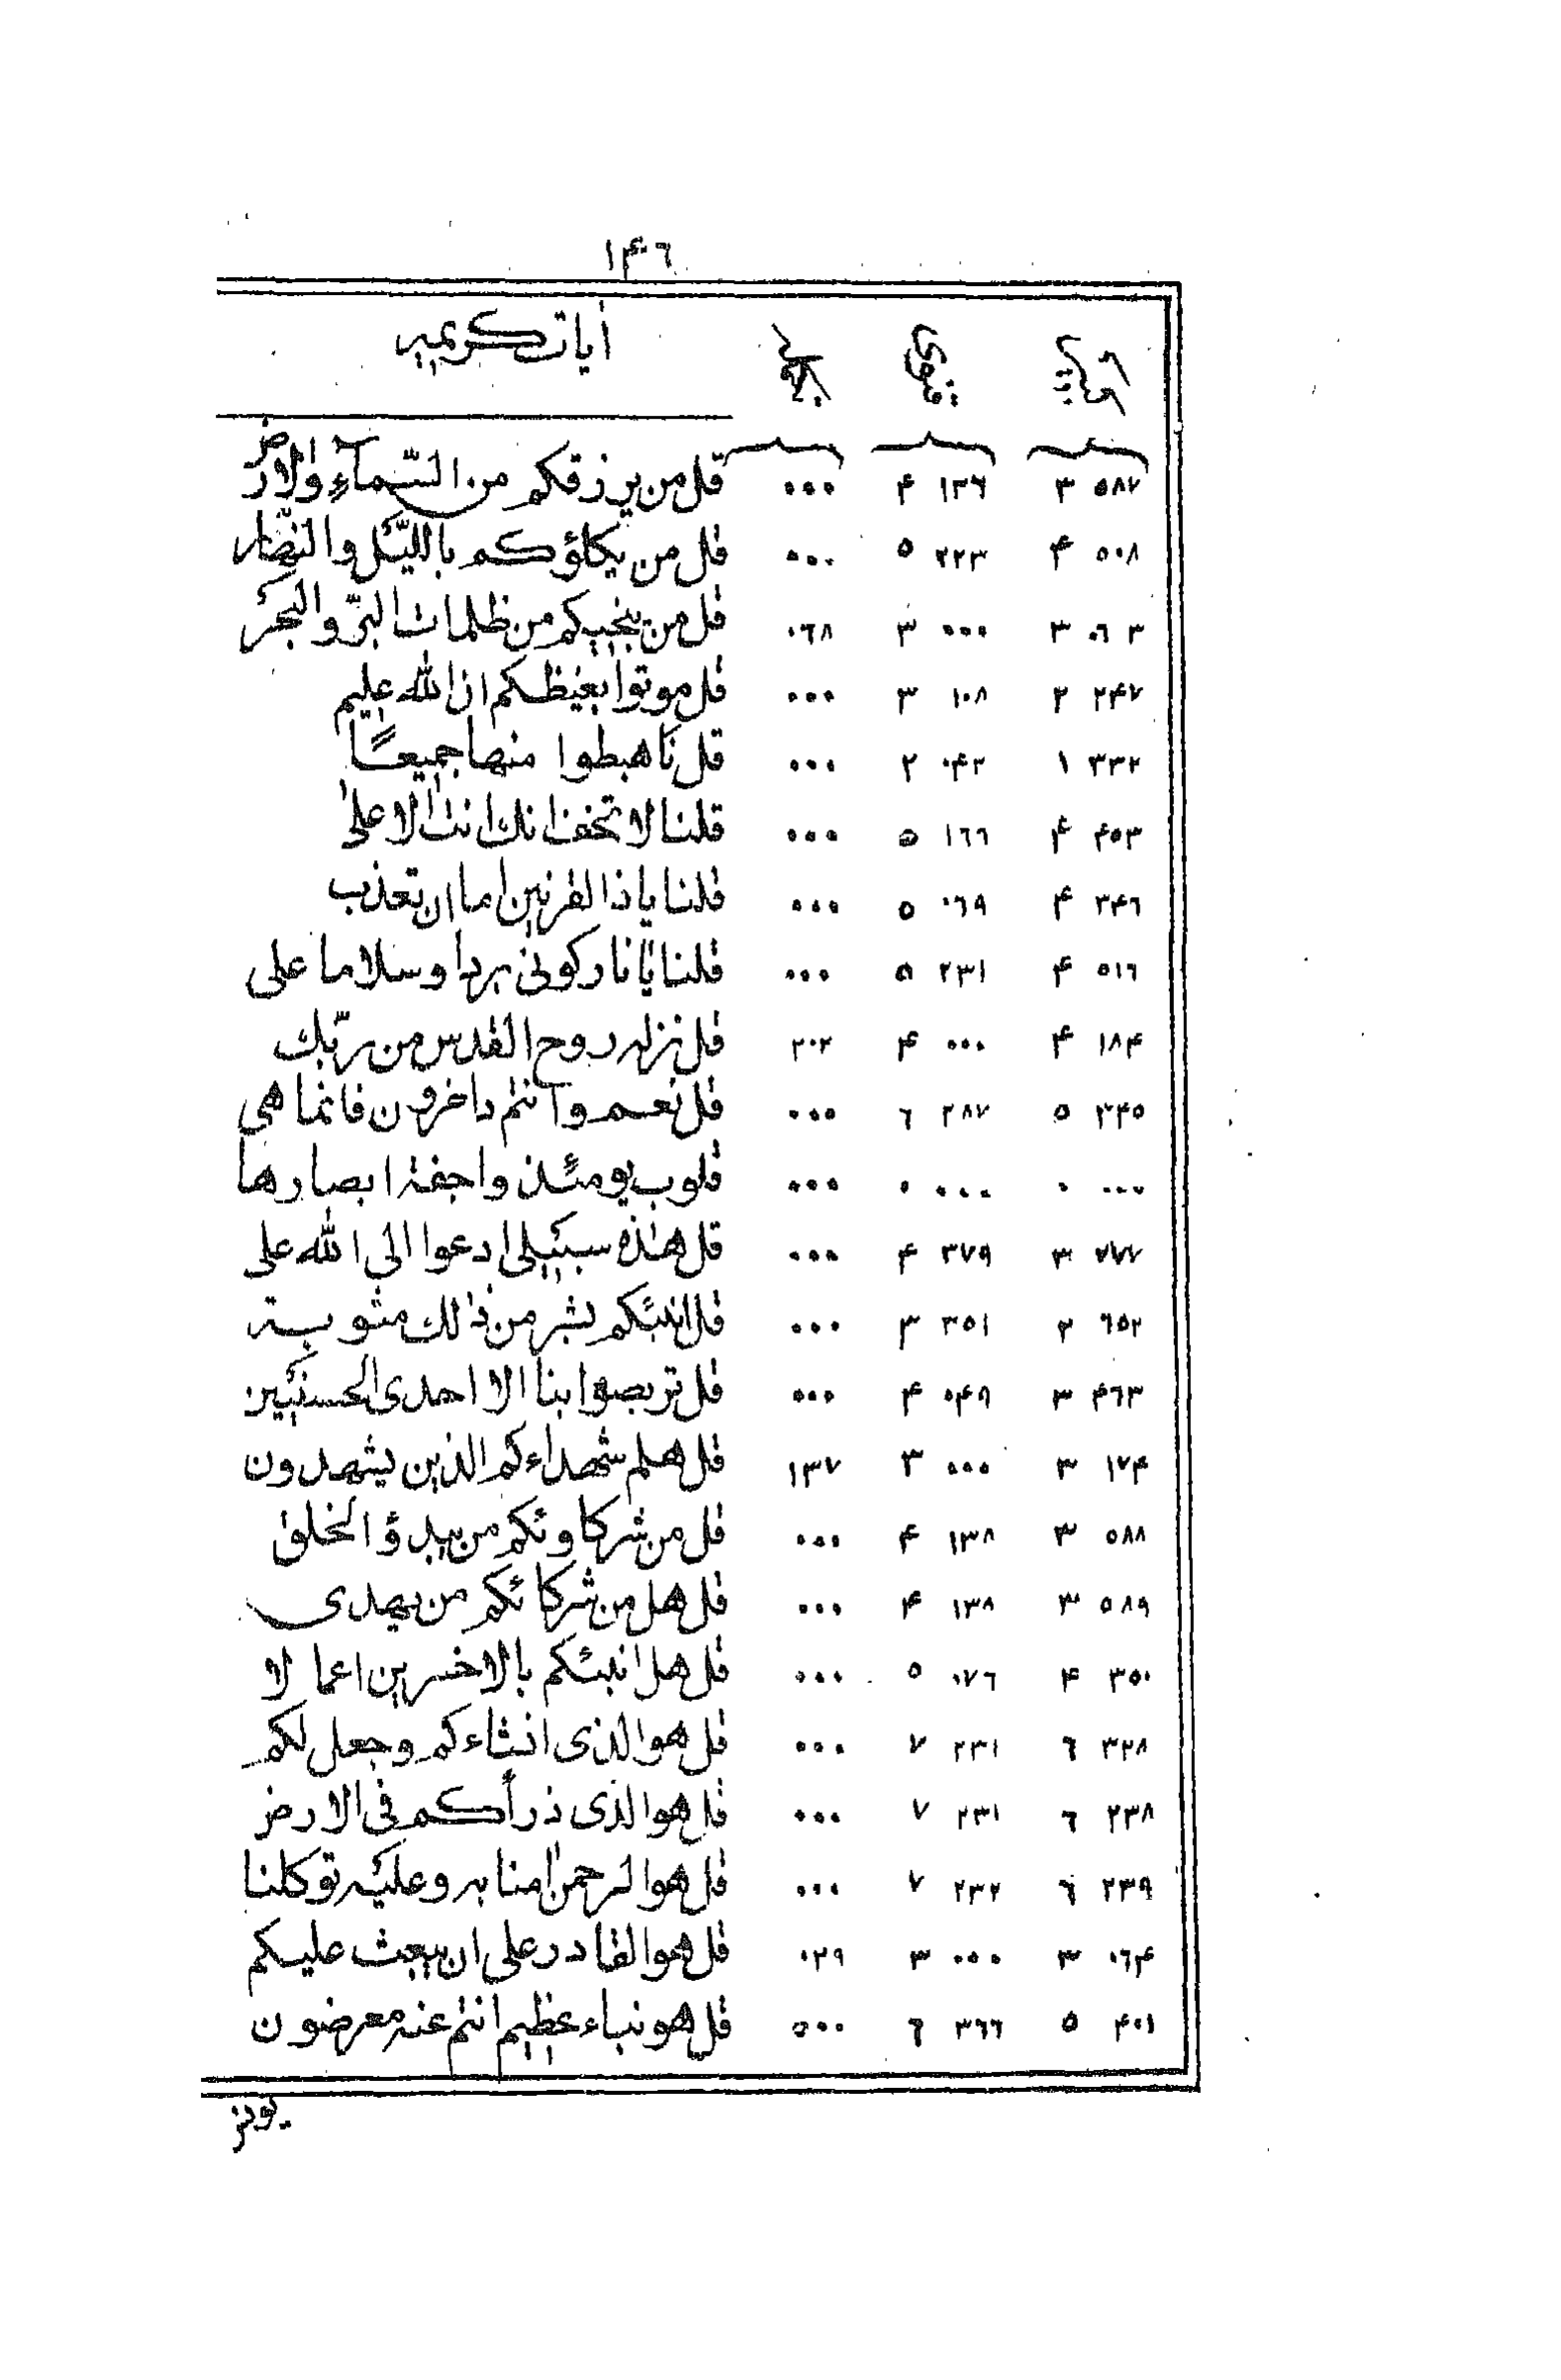 ١۴٦
أيات كريمه
٥٨٧ ٣ ١٣٦ ۴ ٠٠٠ قل من يرزقكم من السّمآءِ والارض
٥٠٨ ۴ ٢٢٣ ٥ ٠٠٠ قل من يكلؤكم بالليّل والنهّار
٠٦٣ ٣ ٠٠٠ ٣ ٠٦٨ قل من ينجيكم من ظلمات البرّ والبحر
٢۴٧ ٢ ١٠٨ ٣ ٠٠٠ قل موتوا بغيظكم ان الله عليم
٣٣٢ ١ ٠۴٢ ٢ ٠٠٠ قلنا هبطوا منها جميعًا
۴٥٣ ۴ ١٦٦ ٥ ٠٠٠ قلنا لا تخف انك انت الاعلىٰ
٣۴٦ ۴ ٠٦٩ ٥ ٠٠٠ قلنا ياذا القرنين اما ان تعذب
٥١٦ ۴ ٢٣١ ٥ ٠٠٠ قلنا يا نار كونى بردا وسلاما على
١٨۴ ۴ ٠٠٠ ۴ ٢٠٢ قل نزله روح القدس من ربّك
٣۴٥ ٥ ٢٨٧ ٦ ٠٠٠ قل نعم وانتم داخرون فانما هى
٠٠٠ ٠ ٠٠٠ ٠ ٠٠٠ قلوب يومئذ واجفة ابصارها
٧٧٧ ٣ ٣٧٩ ۴ ٠٠٠ قل هٰذه سبيلى ادعوا الى الله على
٦٥٢ ٢ ٣٥١ ٣ ٠٠٠ قل انبئكم بشر من ذٰلك مثوبة
۴٦٣ ٣ ٠۴٩ ۴ ٠٠٠ قل تربصوا بنا الا احدى الحسنيين
١٧۴ ٣ ٠٠٠ ٣ ١٣٧ قل هلم شهداءكم الذين يشهدون
٥٨٨ ٣ ١٣٨ ۴ ٠٠٠ قل من شركاوئكم من يبدؤ الخلق
٥٨٩ ٣ ١٣٨ ۴ ٠٠٠ قل هل من شركائكم من يهدى
٣٥٠ ۴ ٠٧٦ ٥ ٠٠٠ قل هل انبئكم بالاخسرين اعمالا
٣٢٨ ٦ ٢٣١ ٧ ٠٠٠ قل هو الذى انشاءكم وجعل لكم
٢٣٨ ٦ ٢٣١ ٧ ٠٠٠ قل هو الذى ذرأكم فى الارض
٢٣٩ ٦ ٢٣٢ ٧ ٠٠٠ قل هو الرحمن اٰمنا به وعليه توكلنا
٠٦۴ ٣ ٠٠٠ ٣ ٠٢٩ قل هو القادر على ان يبعث عليكم
۴٠١ ٥ ٣٦٦ ٦ ٠٠٠ قل هو نباء عظيم انتم عنه معرضون